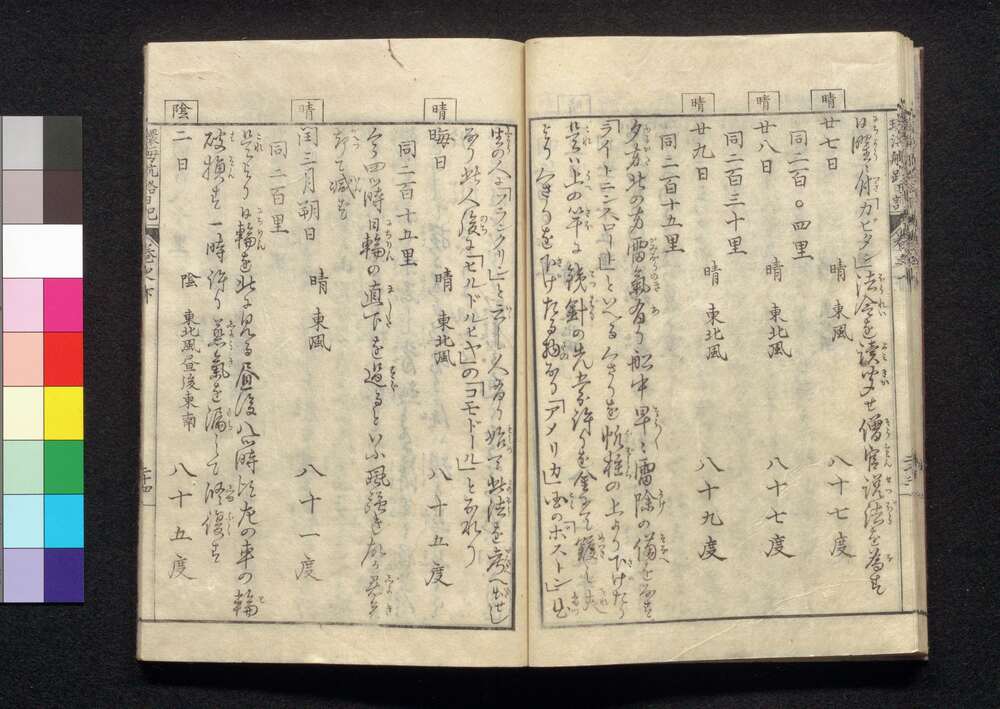 晴
廿七日 晴 東風 八十七度
日曜ニ付「カピタン」法令を讀聞せ僧官説法を為す
同二百〇四里
晴
廿八日 晴 東北風 八十七度
同二百三十里
晴
廿九日 晴 東北風 八十九度
同二百十五里
夕方北の方雷氣有り船中早々雷除の備を為す
「ライトニンスロート」といへるくさりを帆柱の上より下けたり
是ハ上の竿に銕針の先 許りを金にて
くさりを下けたる物なり「アメリカ」国のホストン出
生の人「フランクリン」と云し人有り始て此法を考へ出せし
なり此人後に「セルトルヒヤ」の「コモドール」となれり
晴
晦日 晴 東北風 八十五度
同二百十五里
今四時日輪の直下を過るといふ風強き故か暑氣
却て減す
晴
閏三月朔日 晴 東風 八十一度
同二百里
是より日輪を北に見る昼後八時頃左の車の輪
破損す一時許り蒸氣を漏して修復す
陰
二日 陰 東北風昼後東南 八十五度
環海航路日記 巻之下